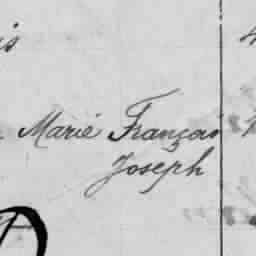 is
Marie François
Joseph